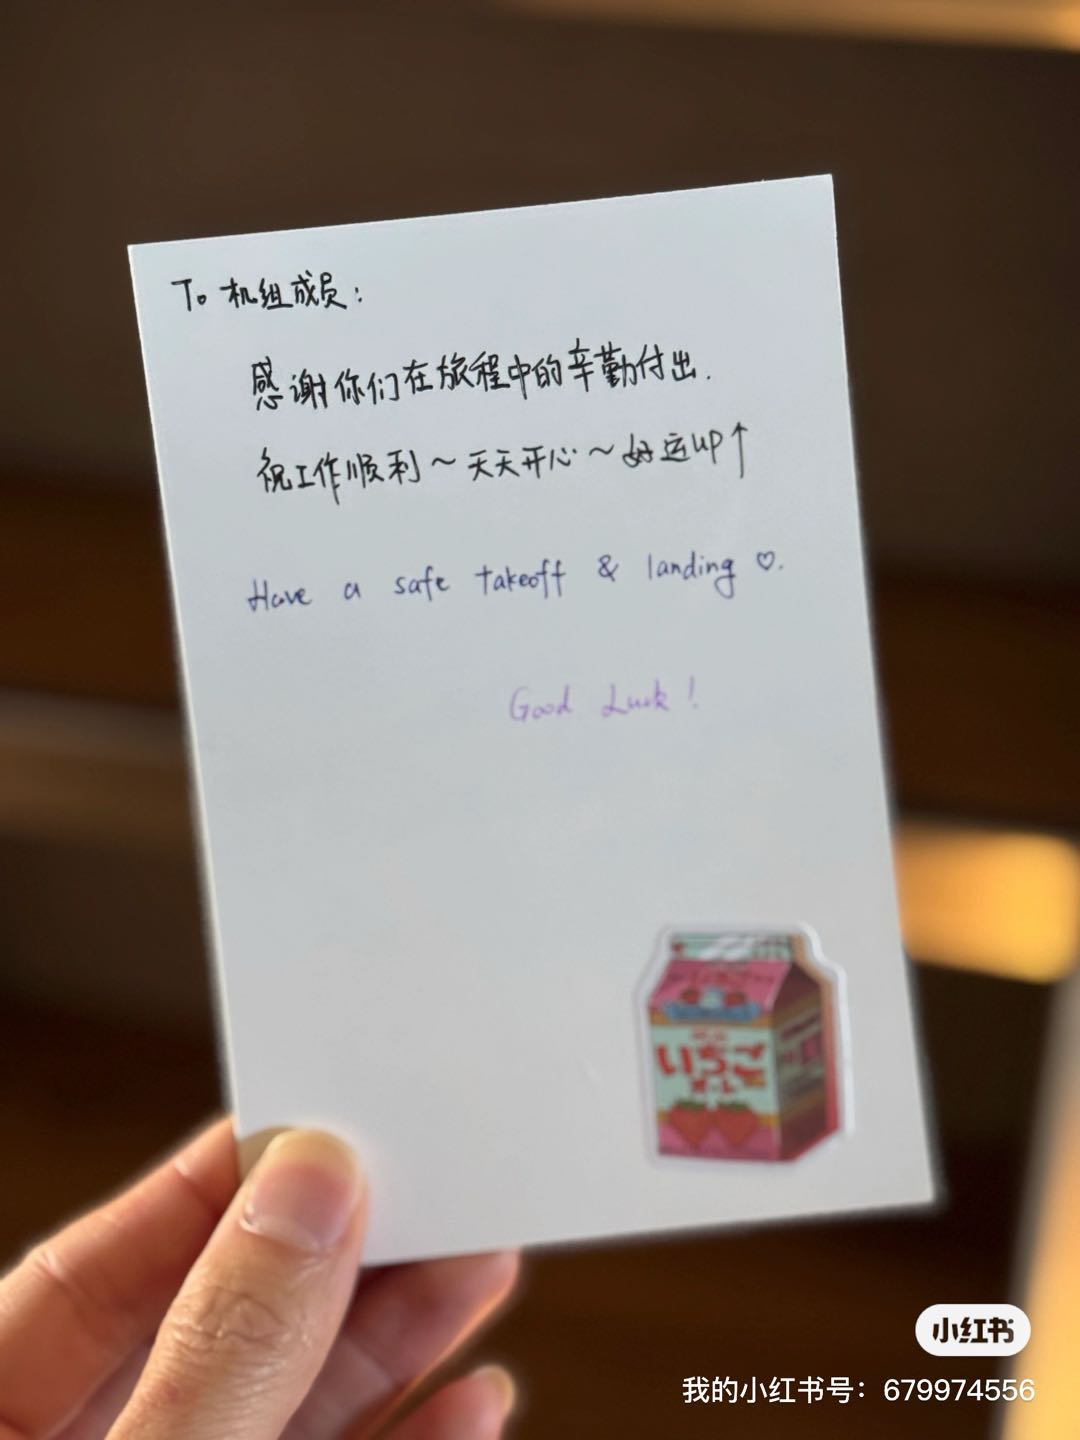 To 机组成员：
感谢你们在旅程中的辛勤付出.
祝工作顺利～天天开心～好运up↑
Have a safe takeoff & landing ♡.
Good Luck !
いちご
オ・レ
小红书
我的小红书号：679974556